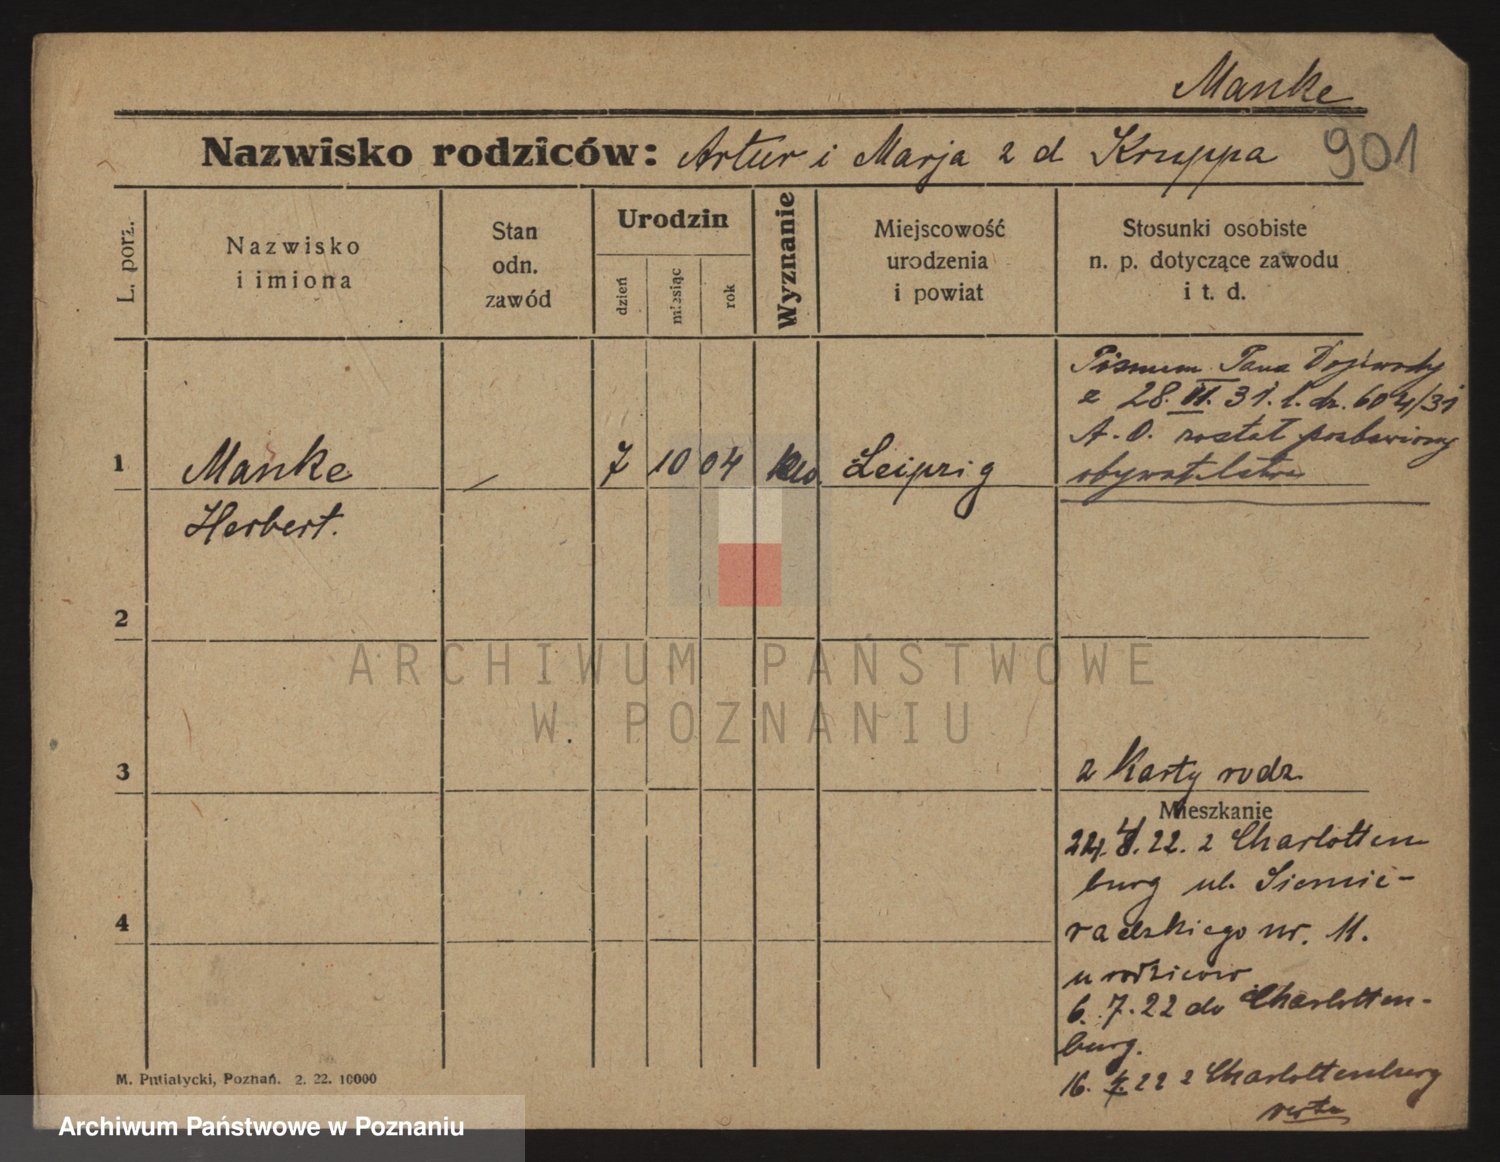 Manke
Nazwisko rodziców: Artur i Marja z d Kruppa
901
L. porz.
Nazwisko
i imiona
Stan
odn.
zawód
Urodzin
dzień
miesiąc
rok
Wyznanie
Miejscowość
urodzenia
i powiat
Stosunki osobiste
n. p. dotyczące zawodu
i t. d.
Pismem Pana Wojewody
z 28. VI. 31. l. dz. 604/31
A. O. został pozbawiony
obywatelstwa
1
Manke
Herbert.
7
10
04
Leipzig
2
3
z Karty rodz.
Mieszkanie
4
24. 22. z Charlotten
burg ul. Siemie-
radzkiego nr. 11.
u rodziców
6. 7. 22 do Charlotten-
burg.
16. 22 z Charlottenburg
verte
M. Putiatycki, Poznań. 2. 22. 10000
ARCHIWUM PAŃSTWOWE
W POZNANIU
Archiwum Państwowe w Poznaniu